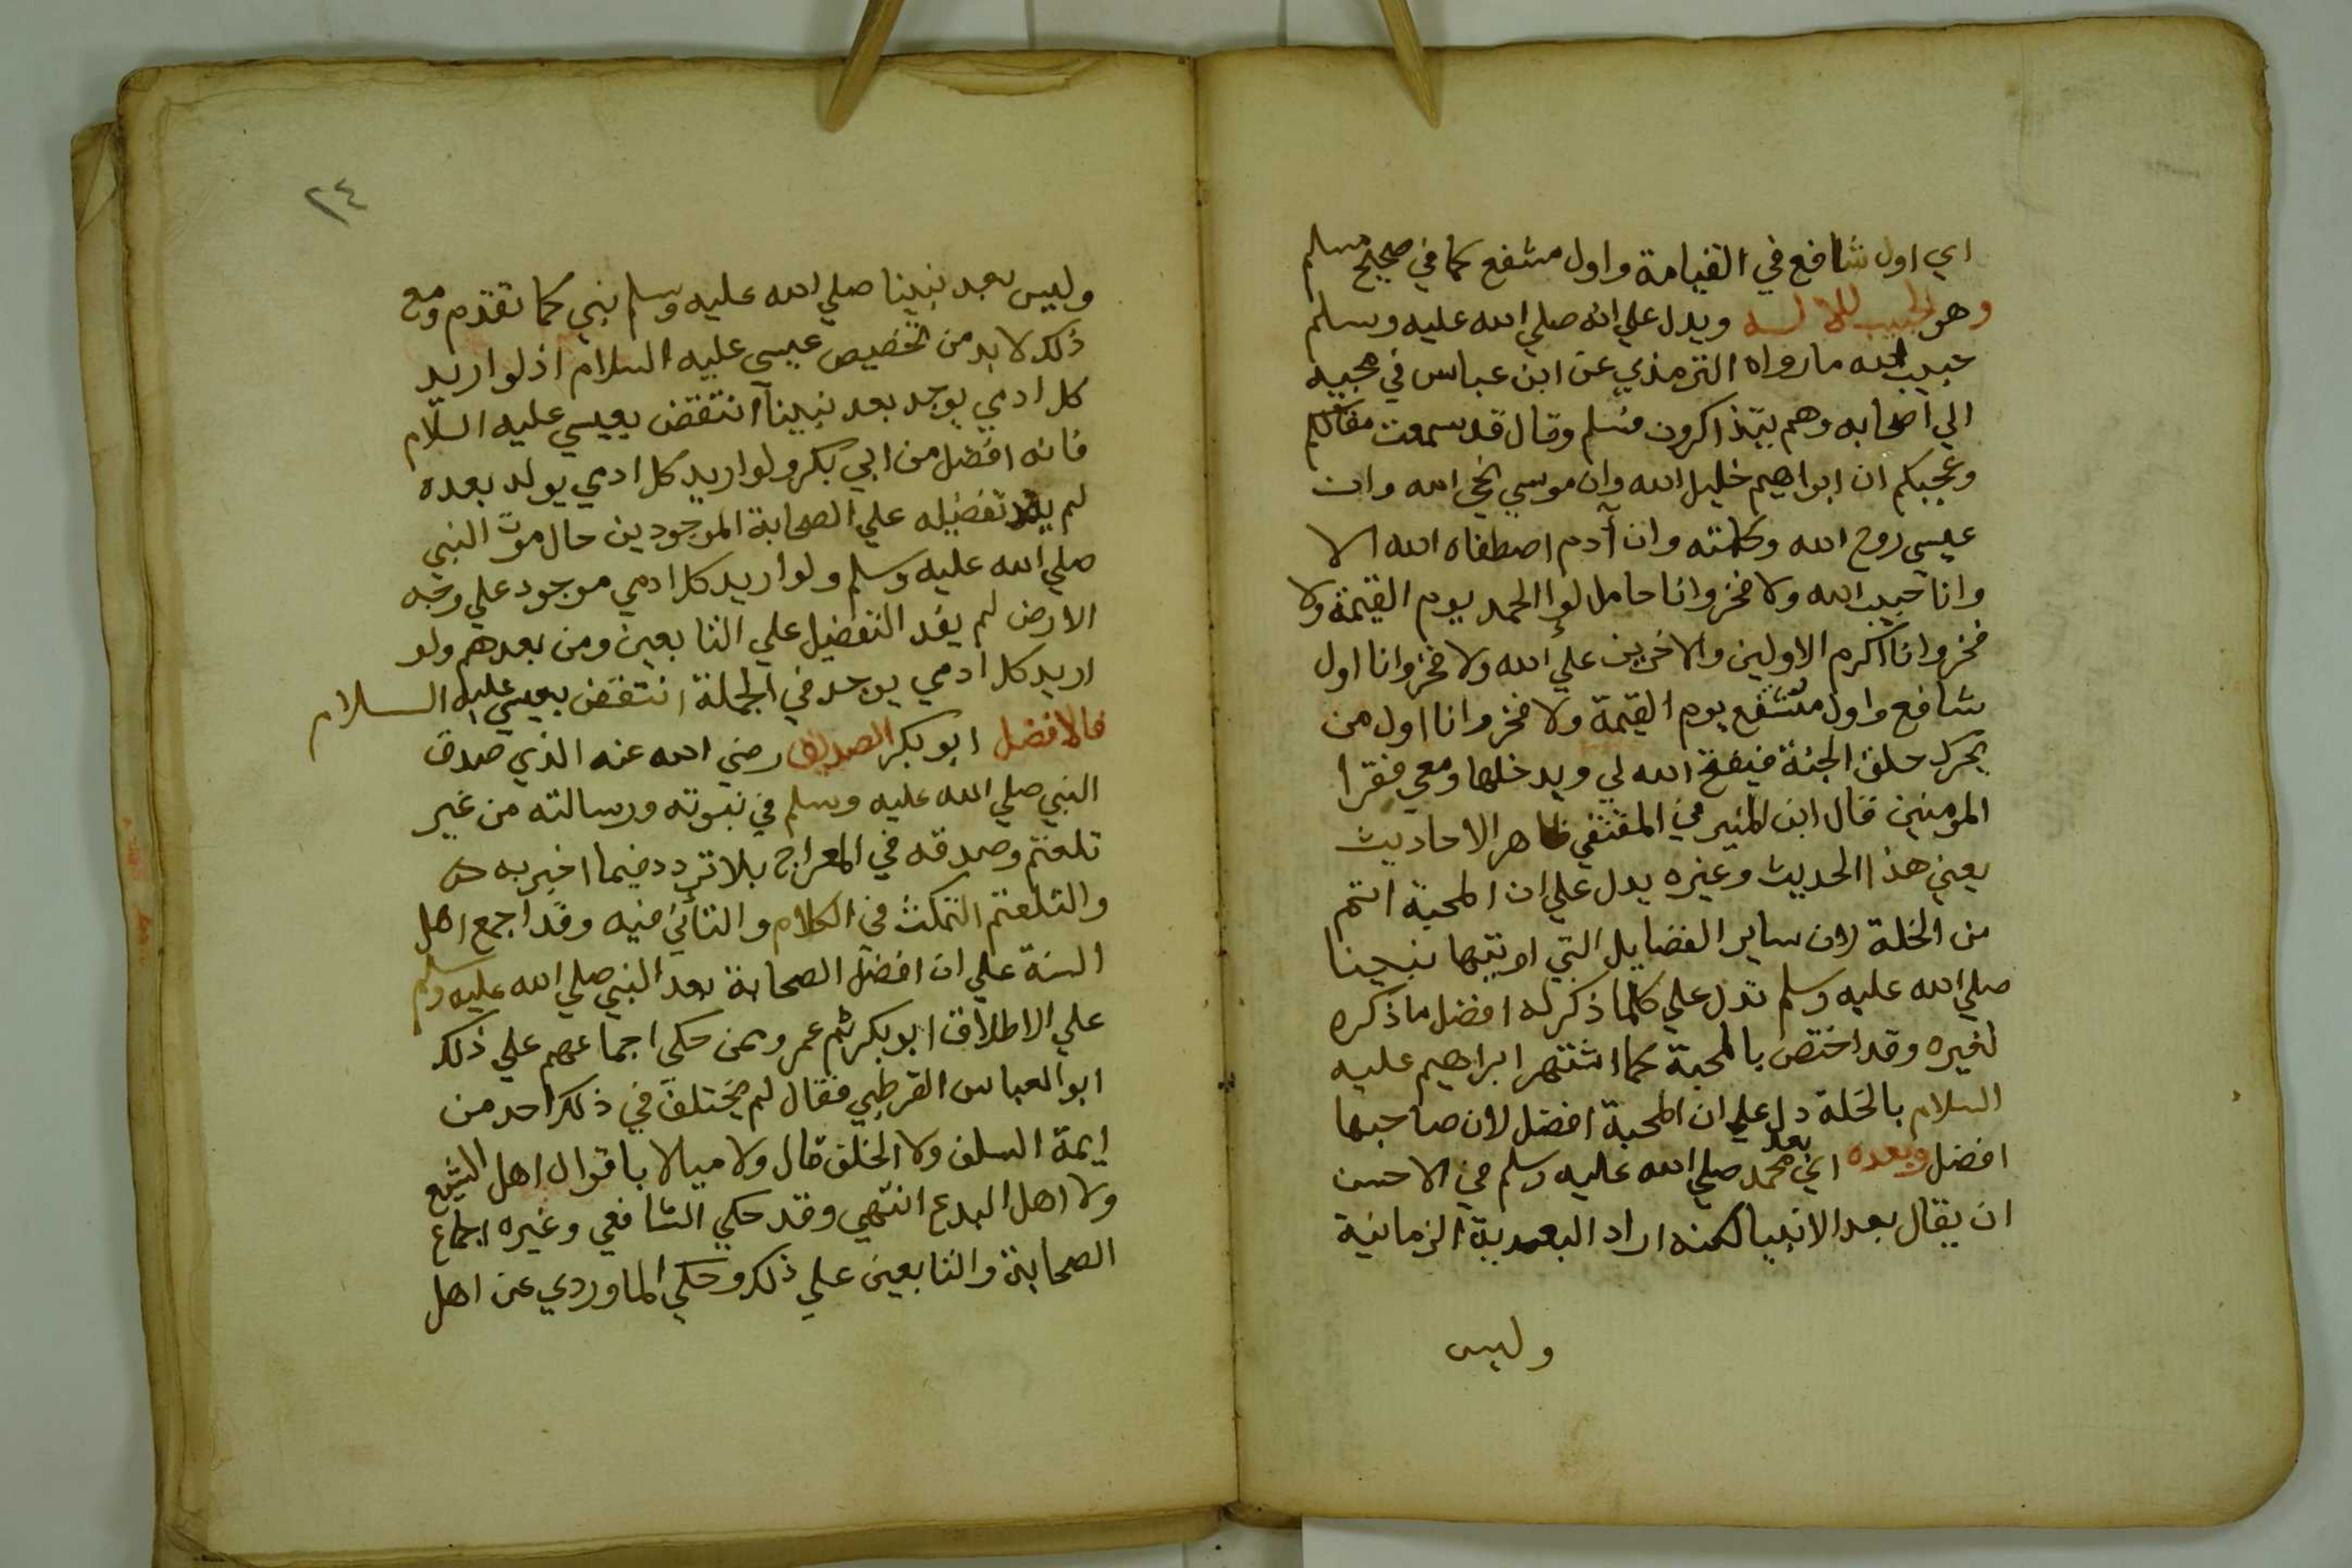 اي اول شافع في القيامة واول مشفع كما في صحيح مسلم
وهو الحبيب للاله ويدل علي انه صلي الله عليه وسلم
حبيب الله مارواه الترمذي عن ابن عباس في مجييه
الي اصحابه وهم يتذاكرون فسلم وقال قد سمعت مقالتكم
وعجبكم ان ابراهيم خليل الله وان موسي نجي الله وان
عيسي روح الله وكلمته وان آدم اصطفاه الله الا
وانا حبيب الله ولا فخر وانا حامل لوا الحمد يوم القيمة ولا
فخر وانا اكرم الاولين والاخرين علي الله ولا فخر وانا اول
شافع واول مشفع يوم القيمة ولا فخر وانا اول من
يحرك حلق الجنة فيفتح الله لي ويدخلها ومعي فقرا
المومنين قال ابن المنير في المقتفي ظاهر الاحاديث
يعني هذا الحديث وغيره يدل علي ان المحبة اتم
من الخلة لان ساير الفضايل التي اوتيها نبينا
صلي الله عليه وسلم تدل علي كلما ذكر له افضل ما ذكره
لغيره وقد اختص بالمحبة كما اشتهر ابراهيم عليه
السلام بالخلة دل علي ان المحبة افضل لان صاحبها
افضل وبعده اي بعد محمد صلي الله عليه وسلم في الاحسن
ان يقال بعد الانبيا لكنه اراد البعدية الزمانية
وليس
٢٤
وليس بعد نبينا صلي الله عليه وسلم نبي كما تقدم ومع
ذلك لابد من تخصيص عيسي عليه السلام اذ لو اريد
كل ادمي يوجد بعد نبينا انتقض بعيسي عليه السلام
فانه افضل من ابي بكر ولو اريد كل ادمي يولد بعده
لم يفد تفضيله علي الصحابة الموجودين حال موت النبي
صلي الله عليه وسلم ولو اريد كل ادمي موجود علي وجه
الارض لم يفد التفضيل علي التابعين ومن بعدهم ولو
اريد كل ادمي يوجد في الجملة انتقض بعيسي عليه السلام
فالافضل ابو بكر الصديق رضي الله عنه الذي صدق
النبي صلي الله عليه وسلم في نبوته ورسالته من غير
تلعثم وصدقه في المعراج بلا تردد فيما اخبر به
والتلعثم التمكث في الكلام والتأني فيه وقد اجمع اهل
السنة علي ان افضل الصحابة بعد النبي صلي الله عليه وسلم
علي الاطلاق ابو بكر ثم عمر وممن حكي اجماعهم علي ذلك
ابو العباس القرطبي فقال لم يختلف في ذلك احد من
ايمة السلف ولا الخلف قال ولا مبالا باقوال اهل التشيع
ولا اهل البدع انتهي وقد حكي الشافعي وغيره اجماع
الصحابة والتابعين علي ذلك وحكي الماوردي عن اهل